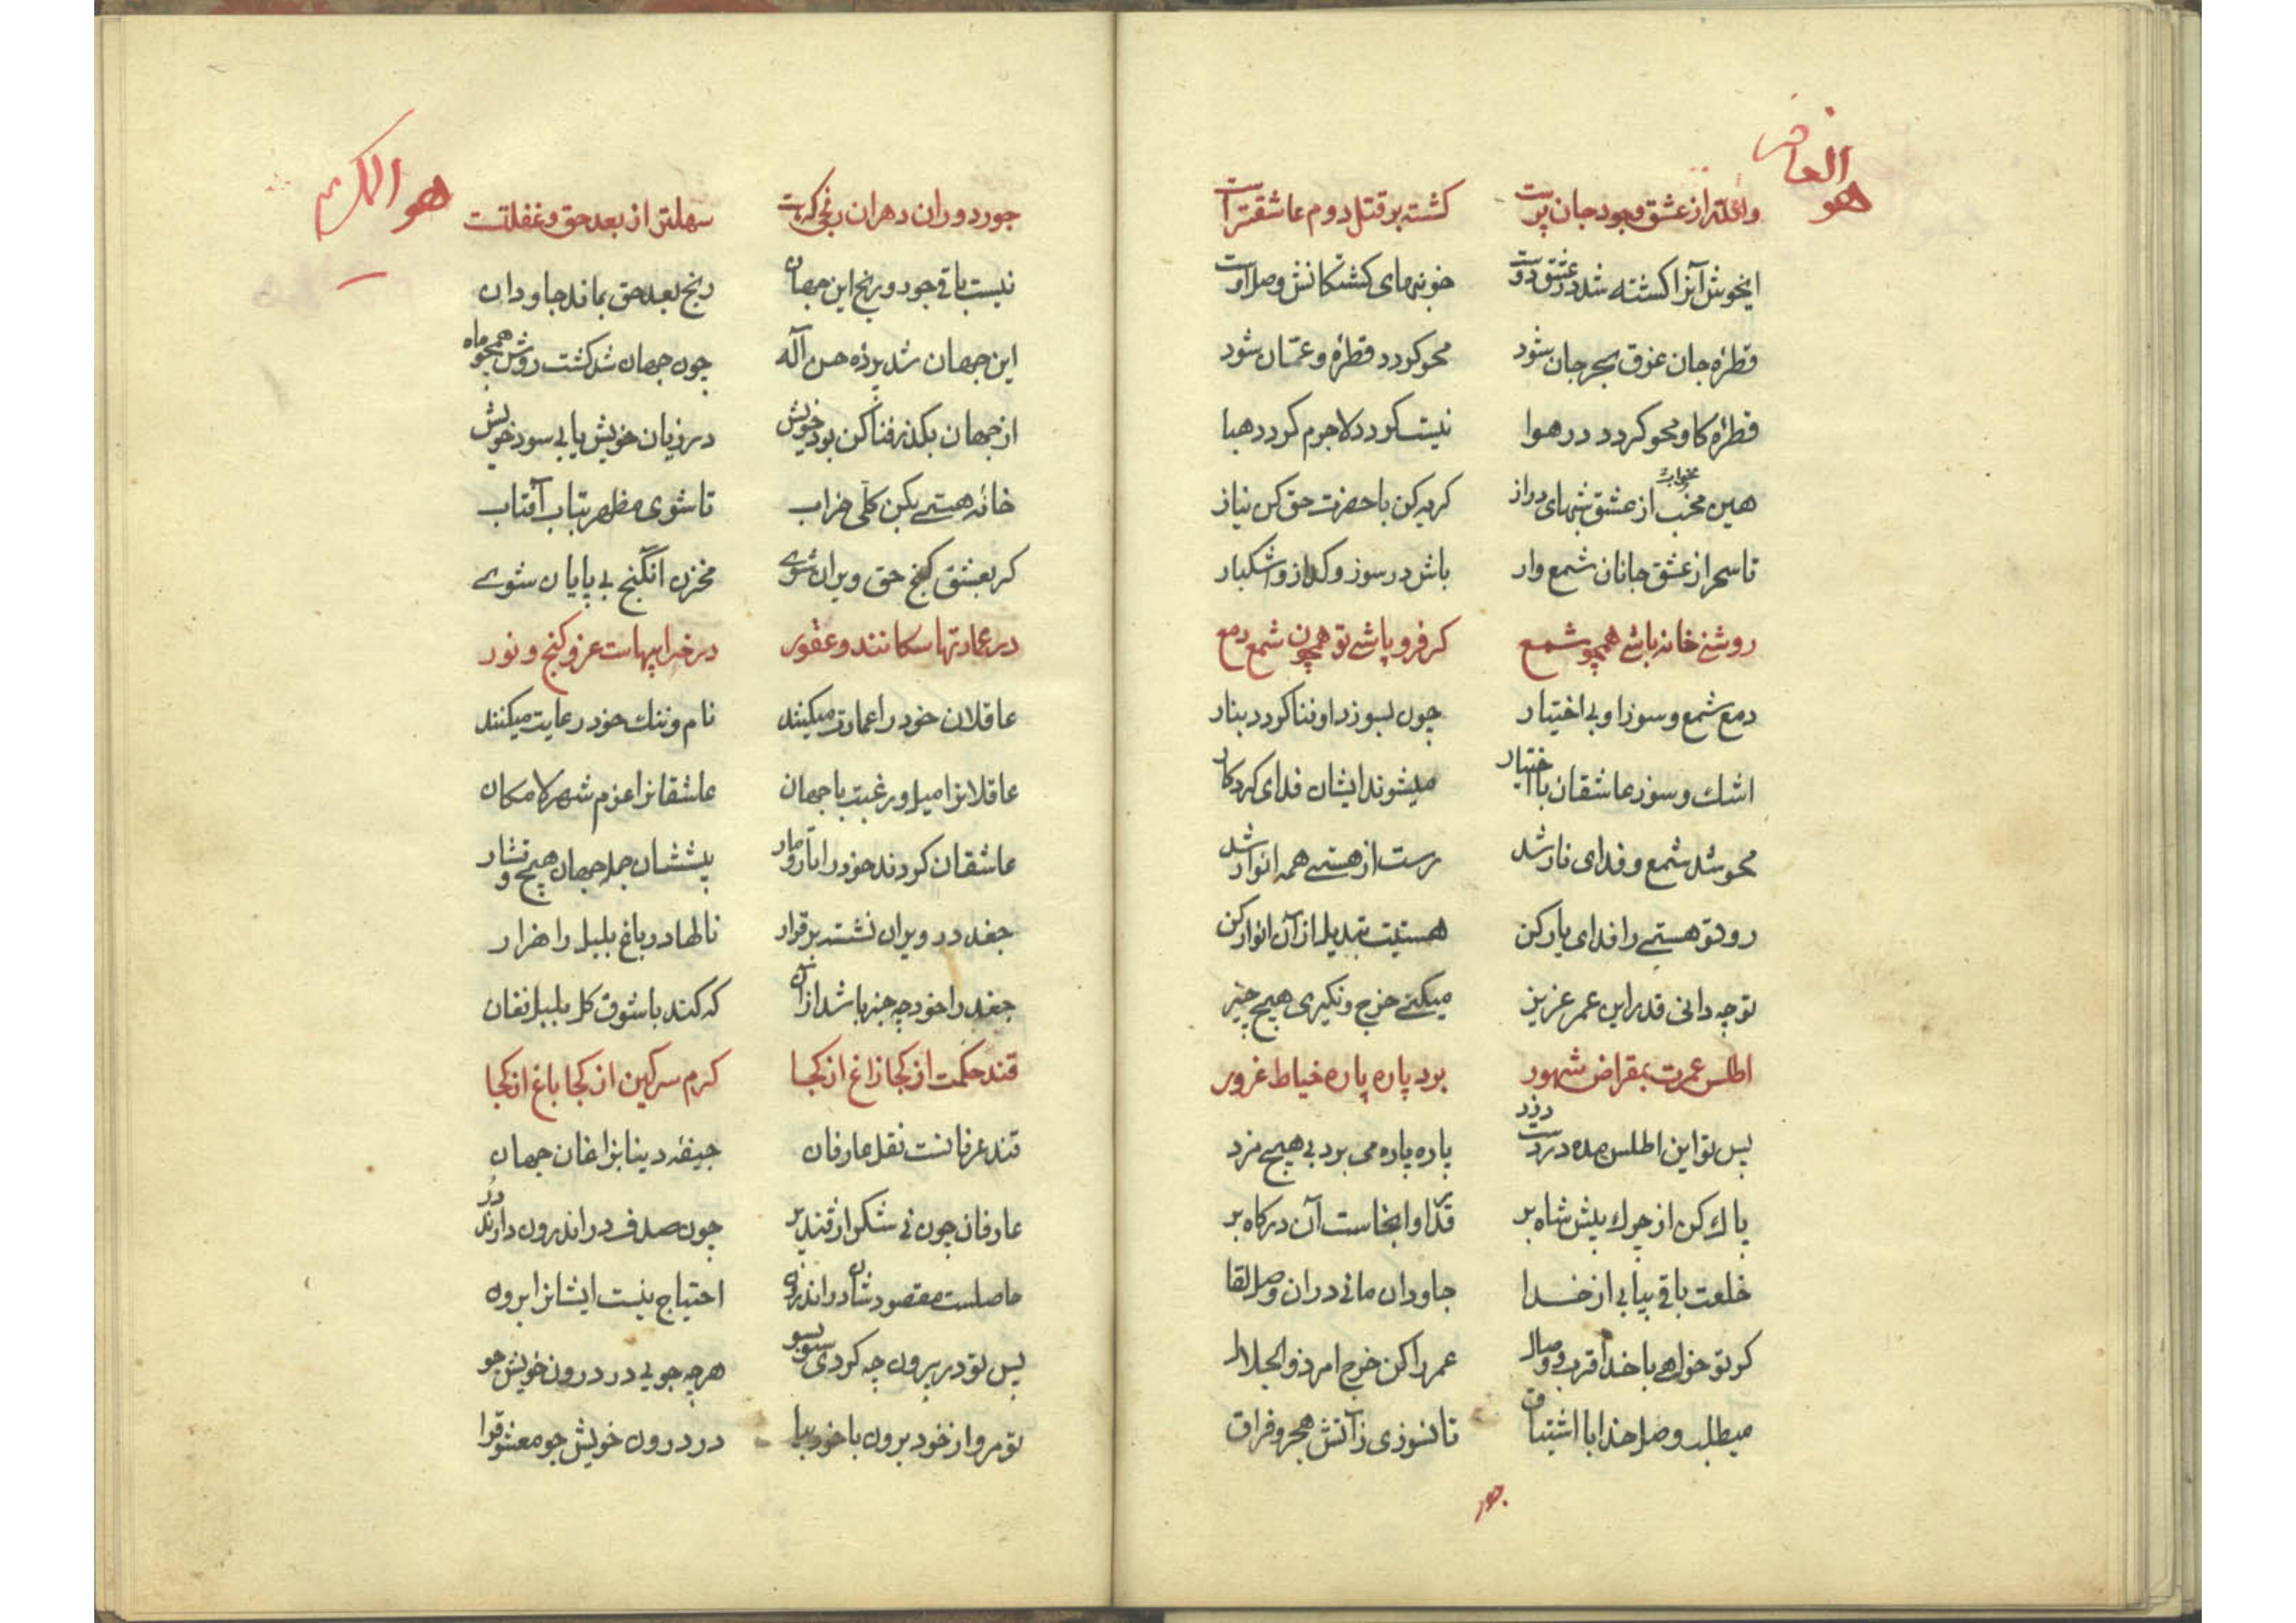 هو
وانکه از عشق وجود جان پرست کشته بر قتل دوم عاشقترست
ایخوش آنرا کشته شد در عشق دوست خونبهای کشتکانش وصل اوست
قطرۀ جان غرق بحر جان شود محو کردد قطرۀ و عمّان شود
قطرۀ کاو محو کردد در هوا نیست کردد لاجرم کردد هبا
هین مخسب از عشق شبهای دراز کریه کن با حضرت حق کن نیاز
تا سحر از عشق جانان شمع وار باش در سوز و کداز و اشکبار
روشنی خانه باشی همچو شمع کر فرو پاشی تو همچون شمع دمع
دمع شمع و سوز او بی اختیار چون بسوزد او فنا کردد بنار
اشك و سوز عاشقان با اختیار میشوند ایشان فدای کردکار
محو شد شمع و فدای نار شد رست از هستی همه انوار شد
رو تو هستی را فدای یار کن هستیت تبدیل از آن انوار کن
تو چه دانی قدر این عمر عزیز میکنی خرج و نکیری هیچ چیز
اطلس عمرت بمقراض شهور برد پاره پاره خیاط غرور
پس تو این اطلس مده در دست دزد پاره پاره می برد بی هیچ مزد
پاك کن از چرك پیش شاه بر قدر او آنجاست آن درکاه بر
خلعت باقی بیابی از خدا جاودان مانی در ان وصل لقا
کر تو خواهی با خدا قرب و وصال عمر را کن خرج امر ذو الجلال
میطلب وصل خدا با اشتیاق تا نسوزی زآتش هجر و فراق
جور
هو الکریم
جور دوران و هران رنجی که هست سهلتر از بعد حق و غفلتست
نیست باقی جور و رنج این جهان رنج بعد حق بماند جاودان
این جهان شد پرده حسن آله چون جهان شد کشت روشن همچو ماه
از جهان بکذر فنا کن بود خویش در زیان خویش یابی سود خویش
خانۀ هستی بکن کلّی خراب تا شوی مظهر بتاب آفتاب
کر بعشق کنج حق ویران شوی مخزن آنکنج بی پایان شوی
در عمارتها سکانند و عقور در خرابیهاست عز و کنج و نور
عاقلان خود را عمارت میکنند نام و ننك خود رعایت میکنند
عاقلانرا میل و رغبت با جهان عاشقانرا عزم شهر لامکان
عاشقان کردند خود را تار و مار پیششان جمله جهان هیچ و نثار
جغد در ویران نشسته برقرار نالها در باغ بلبل را هزار
جغد را خود چه خبر باشد از آن که کند با شوق کل بلبل فغان
قند حکمت از کجا زاغ از کجا کرم سرکین از کجا باغ از کجا
قند عرفانست نقل عارفان جیفۀ دنیا بزاغان جهان
عارفان چون نی شکر از قند پر چون صدف در اندرون دارند در
حاصلست مقصود شان در اندرون احتیاج نیست ایشانرا برون
پس تو در بیرون چه کردی سو بسو هر چه جویی در درون خویش جو
تو مرو از خود برون با خود بیا در درون خویش جو معشوق را